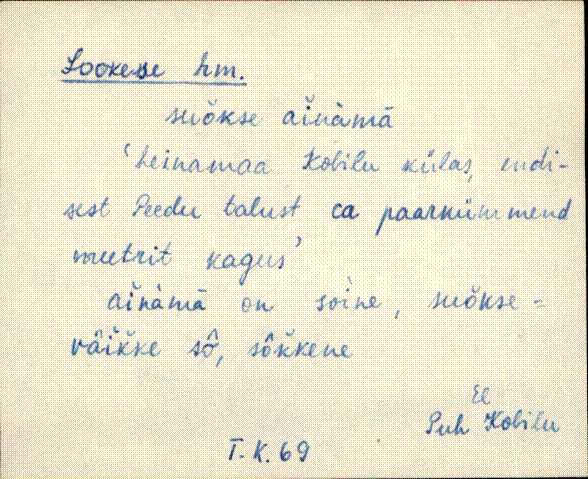 Sookese hm.
suŏkse aĭnàmā
'heinamaa Kobilu külas, endi-
sest Peedu talust ca paarkümmend
meetrit kagus'
aĭnàmā on soine, suŏkse -
väĭkke sô, sôkkene
El
Puh Kobilu
T.K. 69